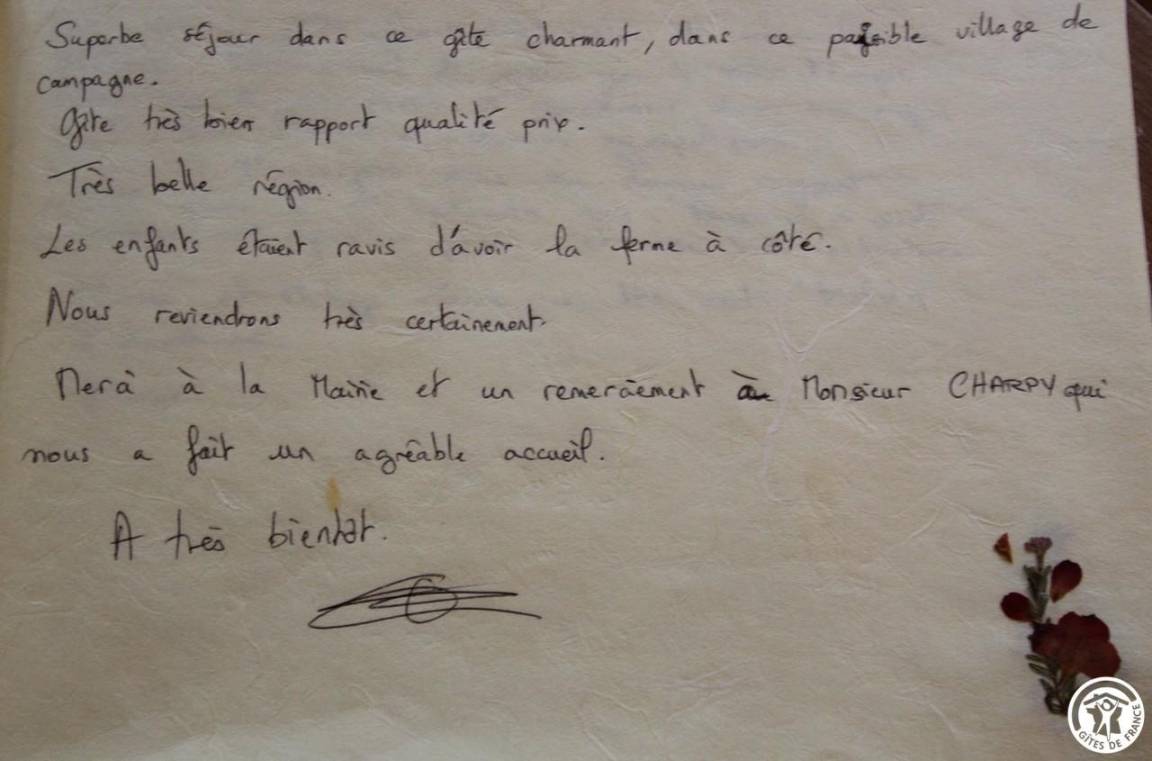 Superbe séjour dans ce gîte charmant, dans ce paisible village de
campagne.
Gîte très bien rapport qualité prix.
Très belle région.
Les enfants étaient ravis d'avoir la ferme à côté.
Nous reviendrons très certainement.
Merci à la Mairie et un remerciement à Monsieur CHARPY qui
nous a fait un agréable accueil.
A très bientôt.
GÎTES DE FRANCE